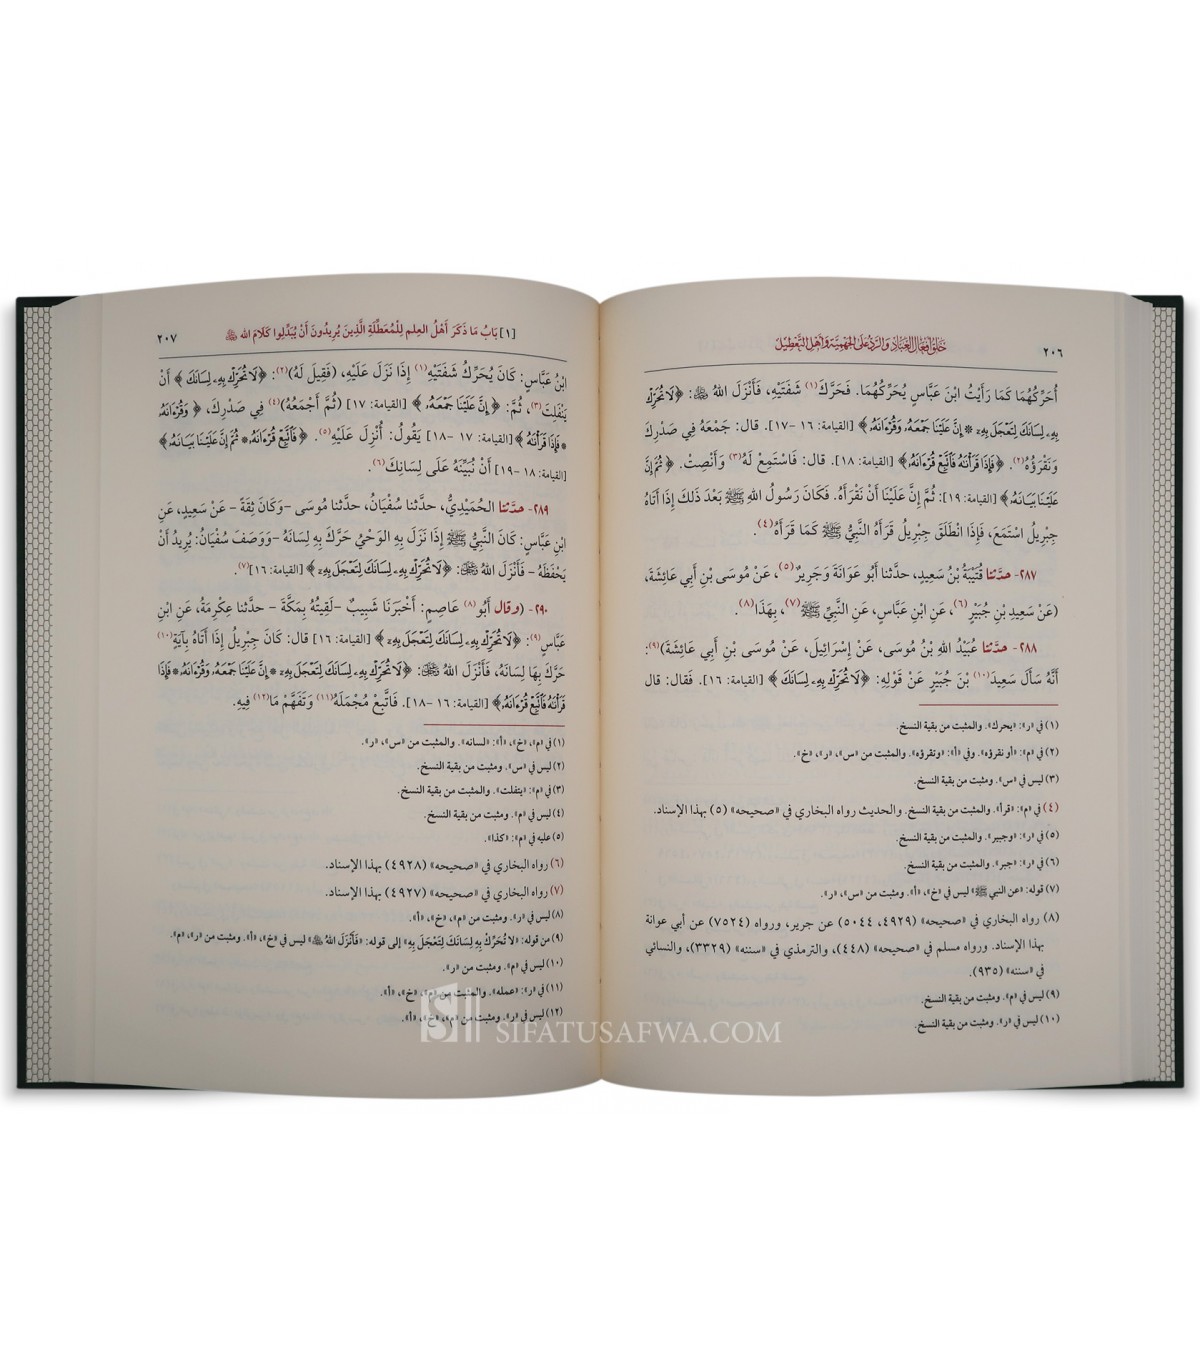 ٢٠٦
خلق أفعال العباد والرد على الجهمية وأهل التعطيل
أُحَرِّكُهُمَا كَمَا رَأَيْتُ ابْنَ عَبَّاسٍ يُحَرِّكُهُمَا. فَحَرَّكَ(١) شَفَتَيْهِ، فَأَنْزَلَ اللهُ ﷻ: ﴿لَا تُحَرِّكْ
بِهِۦ لِسَانَكَ لِتَعْجَلَ بِهِۦٓ * إِنَّ عَلَيْنَا جَمْعَهُۥ وَقُرْءَانَهُۥ﴾ [القيامة: ١٦ -١٧]. قال: جَمْعَهُ فِي صَدْرِكَ
وَنَقْرَؤُهُ(٢). ﴿فَإِذَا قَرَأْنَٰهُ فَٱتَّبِعْ قُرْءَانَهُۥ﴾ [القيامة: ١٨]. قال: فَاسْتَمِعْ لَهُ(٣) وَأَنْصِتْ. ﴿ثُمَّ إِنَّ
عَلَيْنَا بَيَانَهُۥ﴾ [القيامة: ١٩]: ثُمَّ إِنَّ عَلَيْنَا أَنْ نَقْرَأَهُ. فَكَانَ رَسُولُ اللهِ ﷺ بَعْدَ ذَلِكَ إِذَا أَتَاهُ
جِبْرِيلُ اسْتَمَعَ، فَإِذَا انْطَلَقَ جِبْرِيلُ قَرَأَهُ النَّبِيُّ ﷺ كَمَا قَرَأَهُ(٤).
٢٨٧- حدَّثنا قُتَيْبَةُ بْنُ سَعِيدٍ، حدَّثنا أَبُو عَوَانَةَ وَجَرِيرٌ(٥)، عَنْ مُوسَى بْنِ أَبِي عَائِشَةَ،
(عَنْ سَعِيدِ بْنِ جُبَيْرٍ(٦)، عَنِ ابْنِ عَبَّاسٍ، عَنِ النَّبِيِّ ﷺ(٧)، بِهَذَا(٨).
٢٨٨- حدَّثنا عُبَيْدُ اللهِ بْنُ مُوسَى، عَنْ إِسْرَائِيلَ، عَنْ مُوسَى بْنِ أَبِي عَائِشَةَ)(٩):
أَنَّهُ سَأَلَ سَعِيدَ(١٠) بْنَ جُبَيْرٍ عَنْ قَوْلِهِ: ﴿لَا تُحَرِّكْ بِهِۦ لِسَانَكَ﴾ [القيامة: ١٦]. فَقَال: قال
(١) في «ر»: «يحرك». والمثبت من بقية النسخ.
(٢) في «م»: «أو نقرؤ». وفي «أ»: «ونقرؤه». والمثبت من «س»، «ر»، «خ».
(٣) ليس في «س». ومثبت من بقية النسخ.
(٤) في «م»: «قرأ». والمثبت من بقية النسخ. والحديث رواه البخاري في «صحيحه» (٥) بهذا الإسناد.
(٥) في «ر»: «وجبير». والمثبت من بقية النسخ.
(٦) في «ر»: «جبر». والمثبت من بقية النسخ.
(٧) قوله: «عن النبي ﷺ» ليس في «خ»، «أ». ومثبت من «س»، «ر».
(٨) رواه البخاري في «صحيحه» (٤٩٢٩، ٥٠٤٤) عن جرير، ورواه (٧٥٢٤) عن أبي عوانة
بهذا الإسناد. ورواه مسلم في «صحيحه» (٤٤٨)، والترمذي في «سننه» (٣٣٢٩)، والنسائي
في «سننه» (٩٣٥).
(٩) ليس في «م». ومثبت من بقية النسخ.
(١٠) ليس في «ر». ومثبت من بقية النسخ.
[١] بَابُ مَا ذَكَرَ أَهْلُ العِلمِ لِلْمُعَطِّلَةِ الَّذِينَ يُرِيدُونَ أَنْ يُبَدِّلوا كَلَامَ الله ﷻ
٢٠٧
ابْنُ عَبَّاسٍ: كَانَ يُحَرِّكُ شَفَتَيْهِ(١) إِذَا نَزَلَ عَلَيْهِ، (فَقِيلَ لَهُ)(٢): ﴿لَا تُحَرِّكْ بِهِۦ لِسَانَكَ﴾ أَنْ
يَنْفَلِتَ(٣)، ثُمَّ: ﴿إِنَّ عَلَيْنَا جَمْعَهُۥ﴾ [القيامة: ١٧] (ثُمَّ أَجْمَعُهُ)(٤) فِي صَدْرِكَ، ﴿وَقُرْءَانَهُۥ
* فَإِذَا قَرَأْنَٰهُ﴾[القيامة: ١٧ -١٨] يَقُولُ: أُنْزِلَ عَلَيْهِ(٥). ﴿فَٱتَّبِعْ قُرْءَانَهُۥ * ثُمَّ إِنَّ عَلَيْنَا بَيَانَهُۥ﴾
[القيامة: ١٨ -١٩] أَنْ نُبَيِّنَهُ عَلَى لِسَانِكَ(٦).
٢٨٩- حدَّثنا الحُمَيْدِيُّ، حدَّثنا سُفْيَانُ، حدَّثنا مُوسَى -وَكَانَ ثِقَةً- عَنْ سَعِيدٍ، عَنِ
ابْنِ عَبَّاسٍ: كَانَ النَّبِيُّ ﷺ إِذَا نَزَلَ بِهِ الْوَحْيُ حَرَّكَ بِهِ لِسَانَهُ -وَوَصَفَ سُفْيَانُ: يُرِيدُ أَنْ
يَحْفَظَهُ- فَأَنْزَلَ اللهُ ﷻ: ﴿لَا تُحَرِّكْ بِهِۦ لِسَانَكَ لِتَعْجَلَ بِهِۦٓ﴾ [القيامة: ١٦](٧).
٢٩٠- (وقال أَبُو(٨) عَاصِمٍ: أَخْبَرَنَا شَبِيبٌ -لَقِيتُهُ بِمَكَّةَ- حدَّثنا عِكْرِمَةُ، عَنِ ابْنِ
عَبَّاسٍ(٩): ﴿لَا تُحَرِّكْ بِهِۦ لِسَانَكَ لِتَعْجَلَ بِهِۦٓ﴾ [القيامة: ١٦] قال: كَانَ جِبْرِيلُ إِذَا أَتَاهُ بِآيَةٍ(١٠)
حَرَّكَ بِهَا لِسَانَهُ، فَأَنْزَلَ اللهُ ﷻ: ﴿لَا تُحَرِّكْ بِهِۦ لِسَانَكَ لِتَعْجَلَ بِهِۦٓ * إِنَّ عَلَيْنَا جَمْعَهُۥ وَقُرْءَانَهُۥ * فَإِذَا
قَرَأْنَٰهُ فَٱتَّبِعْ قُرْءَانَهُۥ﴾ [القيامة: ١٦ -١٨]. فَاتَّبِعْ مُجْمَلَهُ(١١) وَتَفَهَّمْ مَا(١٢) فِيهِ.
(١) في «م»، «خ»، «أ»: «لسانه». والمثبت من «س»، «ر».
(٢) ليس في «س». ومثبت من بقية النسخ.
(٣) في «م»: «يتفلت». والمثبت من بقية النسخ.
(٤) ليس في «م». ومثبت من بقية النسخ.
(٥) عليه في «م»: «كذا».
(٦) رواه البخاري في «صحيحه» (٤٩٢٨) بهذا الإسناد.
(٧) رواه البخاري في «صحيحه» (٤٩٢٧) بهذا الإسناد.
(٨) ليس في «ر». ومثبت من «م»، «خ»، «أ».
(٩) من قوله: «لا تُحَرِّكْ بِهِ لِسَانَكَ لِتَعْجَلَ بِهِ» إلى قوله: «فَأَنْزَلَ اللهُ ﷻ» ليس في «خ»، «أ». ومثبت من «ر»، «م».
(١٠) ليس في «م». ومثبت من «ر».
(١١) في «ر»: «عمله». والمثبت من «م»، «خ»، «أ».
(١٢) ليس في «ر». ومثبت من «م»، «خ»، «أ».
SIFATUSAFWA.COM